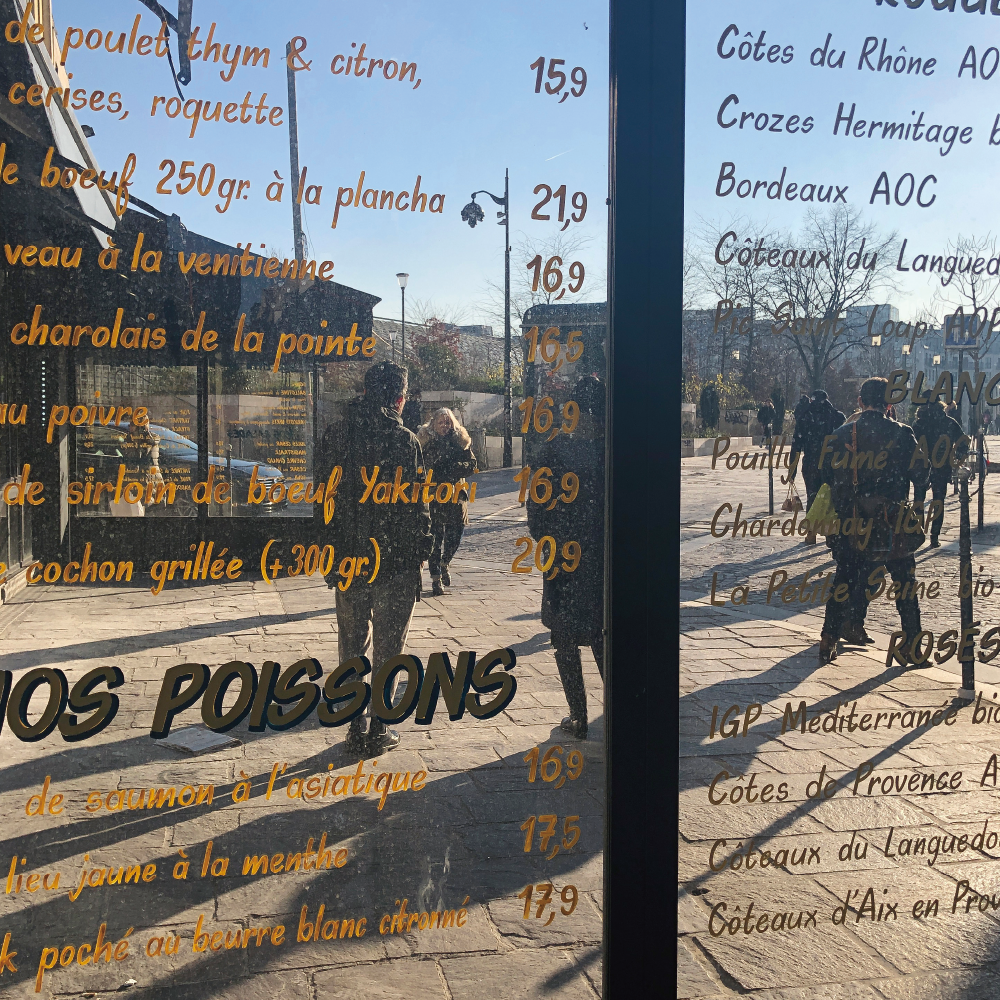 de poulet thym & citron,
cerises, roquette 15,9
de boeuf 250gr. à la plancha 21,9
veau à la venitienne 16,9
charolais de la pointe 16,5
au poivre 16,9
de sirloin de boeuf Yakitori 16,9
cochon grillée (+300gr.) 20,9
NOS POISSONS
de saumon à l'asiatique 16,9
lieu jaune à la menthe 17,5
poché au beurre blanc citronné 17,9
Côtes du Rhône AO
Crozes Hermitage b
Bordeaux AOC
Côteaux du Langued
Pic Saint Loup AOP
BLANC
Pouilly Fumé AOC
Chardonnay IGP
La Petite Seine bio
ROSÉS
IGP Mediterranée bio
Côtes de Provence A
Côteaux du Languedo
Côteaux d'Aix en Prov